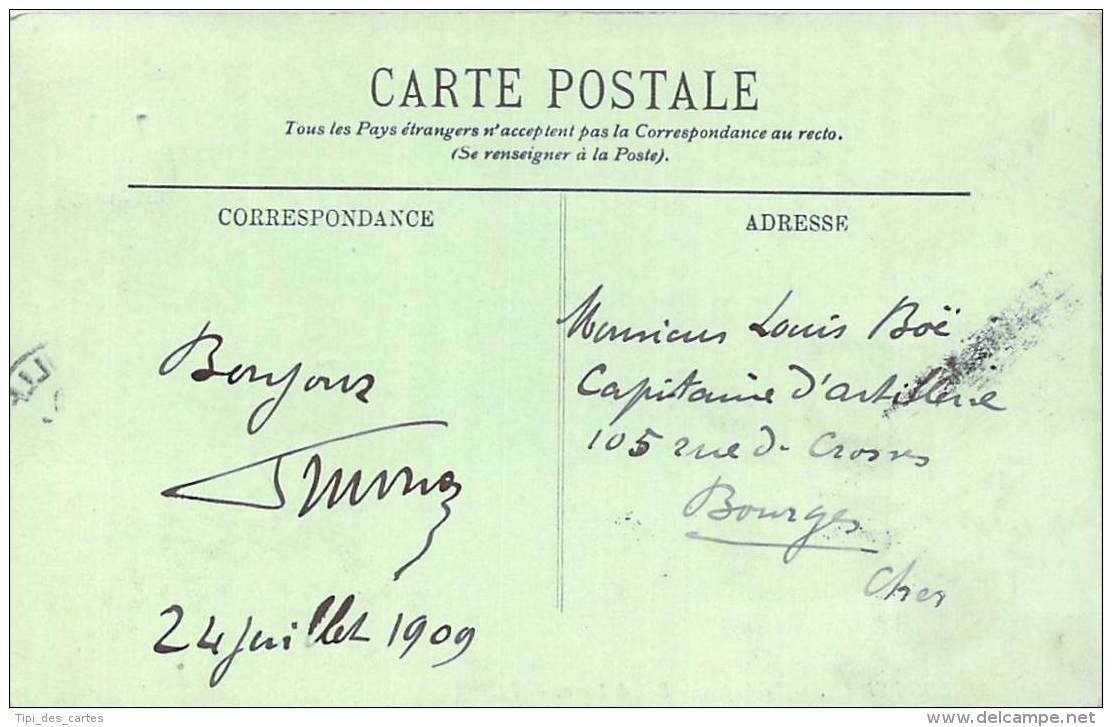 CARTE POSTALE
Tous les Pays étrangers n'acceptent pas la Correspondance au recto.
(Se renseigner à la Poste).
CORRESPONDANCE
Bonjour
24 juillet 1909
ADRESSE
Monsieur Louis Boë
Capitaine d'artillerie
105 rue de Crosses
Bourges
Cher
Tipi_des_cartes
www.delcampe.net